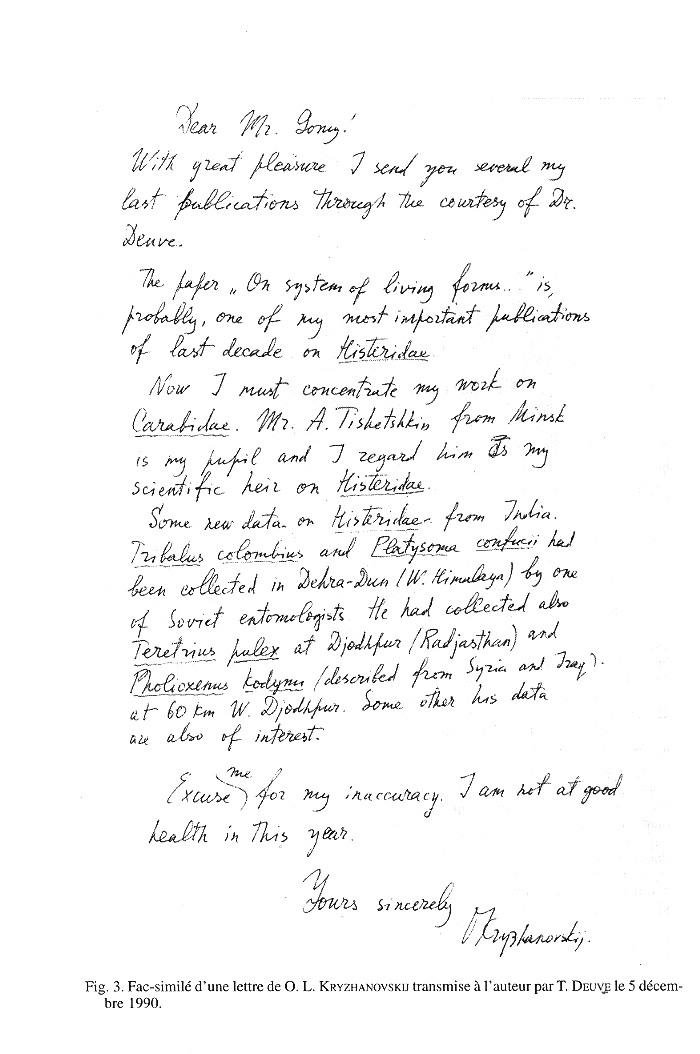 Dear Mr. Gomy!
With great pleasure I send you several my
last publications through the courtesy of Dr.
Deuve.
The paper „On system of living forms..." is,
probably, one of my most important publications
of last decade on Histeridae
Now I must concentrate my work on
Carabidae. Mr. A. Tishetshkin from Minsk
is my pupil and I regard him as my
scientific heir on Histeridae.
Some new data on Histeridae from India.
Tribalus colombius and Platysoma confucii had
been collected in Dehra-Dun (W. Himalaya) by one
of Soviet entomologists He had collected also
Teretrius pulex at Djodhpur (Radjasthan) and
Pholioxenus kodynus (described from Syria and Iraq).
at 60 km W. Djodhpur. Some other his data
are also of interest.
Excuse me for my inaccuracy. I am not at good
health in this year.
Yours sincerely
OKryzhanovskij.
Fig. 3. Fac-similé d'une lettre de O. L. KRYZHANOVSKIJ transmise à l'auteur par T. DEUVE le 5 décem-
bre 1990.